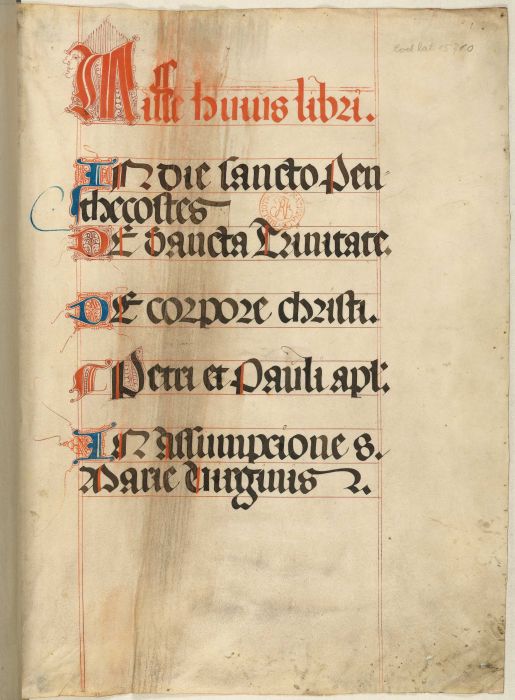 Cod. lat. 15 710
Misse huius libri.
In die sancto Pen-
thecostes
De sancta Trinitate.
De corpore christi.
Petri et Pauli apl'.
In Assumpcione s.
Marie Virginis 2.